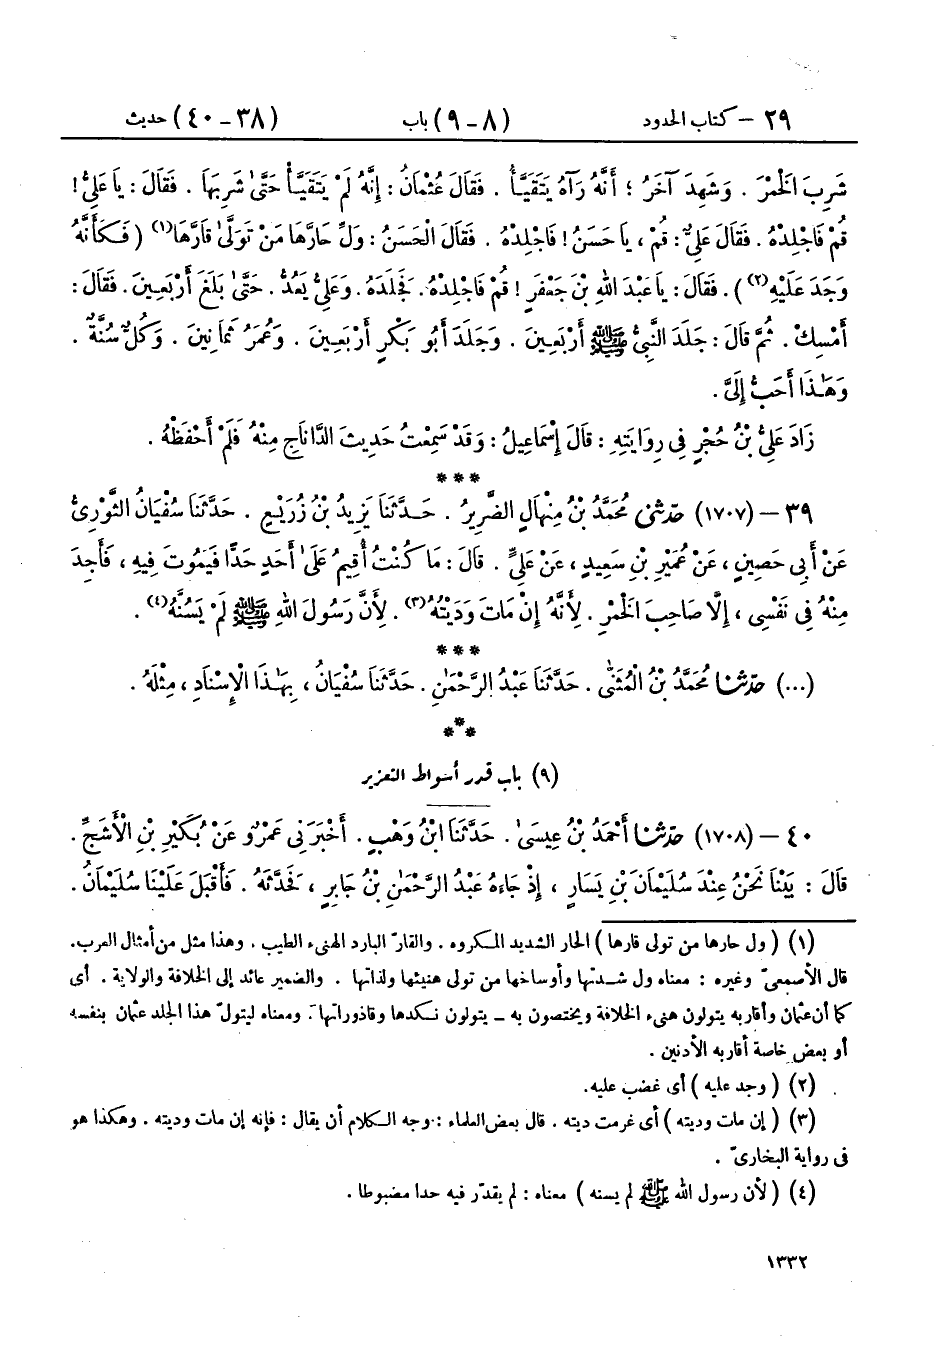 ٢٩ – كتاب الحدود (٨ – ٩) باب (٣٨ – ٤٠) حديث
شَرِبَ الْخَمْرَ . وَشَهِدَ آخَرُ ؛ أَنَّهُ رَآهُ يَتَقَيَّأُ . فَقَالَ عُثْمَانُ : إِنَّهُ لَمْ يَتَقَيَّأْ حَتَّىٰ شَرِبَهَا . فَقَالَ : يَا عَلِيُّ !
قُمْ فَاجْلِدْهُ . فَقَالَ عَلِيٌّ : قُمْ ، يَا حَسَنُ ! فَاجْلِدْهُ . فَقَالَ الْحَسَنُ : وَلِّ حَارَّهَا مَنْ تَوَلَّىٰ قَارَّهَا(١) ( فَكَأَنَّهُ
وَجَدَ عَلَيْهِ(٢) ) . فَقَالَ : يَا عَبْدَ اللهِ بْنَ جَعْفَرٍ ! قُمْ فَاجْلِدْهُ . فَجَلَدَهُ . وَعَلِيٌّ يَعُدُّ . حَتَّىٰ بَلَغَ أَرْبَعِينَ . فَقَالَ :
أَمْسِكْ . ثُمَّ قَالَ : جَلَدَ النَّبِيُّ ﷺ أَرْبَعِينَ . وَجَلَدَ أَبُو بَكْرٍ أَرْبَعِينَ . وَعُمَرُ ثَمَانِينَ . وَكُلٌّ سُنَّةٌ .
وَهَـٰذَا أَحَبُّ إِلَيَّ .
زَادَ عَلِيُّ بْنُ حُجْرٍ فِي رِوَايَتِهِ : قَالَ إِسْمَاعِيلُ : وَقَدْ سَمِعْتُ حَدِيثَ الدَّانَاجِ مِنْهُ فَلَمْ أَحْفَظْهُ .
***
٣٩ – (١٧٠٧) حدّثني مُحَمَّدُ بْنُ مِنْهَالٍ الضَّرِيرُ . حَدَّثَنَا يَزِيدُ بْنُ زُرَيْعٍ . حَدَّثَنَا سُفْيَانُ الثَّوْرِيُّ
عَنْ أَبِي حَصِينٍ ، عَنْ عُمَيْرِ بْنِ سَعِيدٍ ، عَنْ عَلِيٍّ . قَالَ : مَا كُنْتُ أُقِيمُ عَلَىٰ أَحَدٍ حَدًّا فَيَمُوتَ فِيهِ ، فَأَجِدَ
مِنْهُ فِي نَفْسِي ، إِلَّا صَاحِبَ الْخَمْرِ . لِأَنَّهُ إِنْ مَاتَ وَدَيْتُهُ(٣) . لِأَنَّ رَسُولَ اللهِ ﷺ لَمْ يَسُنَّهُ(٤) .
***
(...) حدّثنا مُحَمَّدُ بْنُ الْمُثَنَّىٰ . حَدَّثَنَا عَبْدُ الرَّحْمَـٰنِ . حَدَّثَنَا سُفْيَانُ ، بِهَـٰذَا الْإِسْنَادِ ، مِثْلَهُ .
***
(٩) باب قدر أسواط التعزير
٤٠ – (١٧٠٨) حدّثنا أَحْمَدُ بْنُ عِيسَىٰ . حَدَّثَنَا ابْنُ وَهْبٍ . أَخْبَرَنِي عَمْرٌو عَنْ بُكَيْرِ بْنِ الْأَشَجِّ .
قَالَ : بَيْنَا نَحْنُ عِنْدَ سُلَيْمَانَ بْنِ يَسَارٍ ، إِذْ جَاءَهُ عَبْدُ الرَّحْمَـٰنِ بْنُ جَابِرٍ ، فَحَدَّثَهُ . فَأَقْبَلَ عَلَيْنَا سُلَيْمَانُ .
(١) ( ول حارها من تولى قارها ) الحار الشديد المكروه . والقارّ البارد الهنىء الطيب . وهذا مثل من أمثال العرب.
قال الأصمعىّ وغيره : معناه ول شدتها وأوساخها من تولى هنيئها ولذاتها . والضمير عائد إلى الخلافة والولاية . أى
كما أن عثمان وأقاربه يتولون هنىء الخلافة ويختصون به – يتولون نكدها وقاذوراتها . ومعناه ليتولّ هذا الجلد عثمان بنفسه
أو بعض خاصة أقاربه الأدنين .
(٢) ( وجد عليه ) أى غضب عليه.
(٣) ( إن مات وديته ) أى غرمت ديته . قال بعض العلماء : وجه الكلام أن يقال : فإنه إن مات وديته . وهكذا هو
فى رواية البخارىّ .
(٤) ( لأن رسول الله ﷺ لم يسنه ) معناه : لم يقدّر فيه حدا مضبوطا .
١٣٣٢